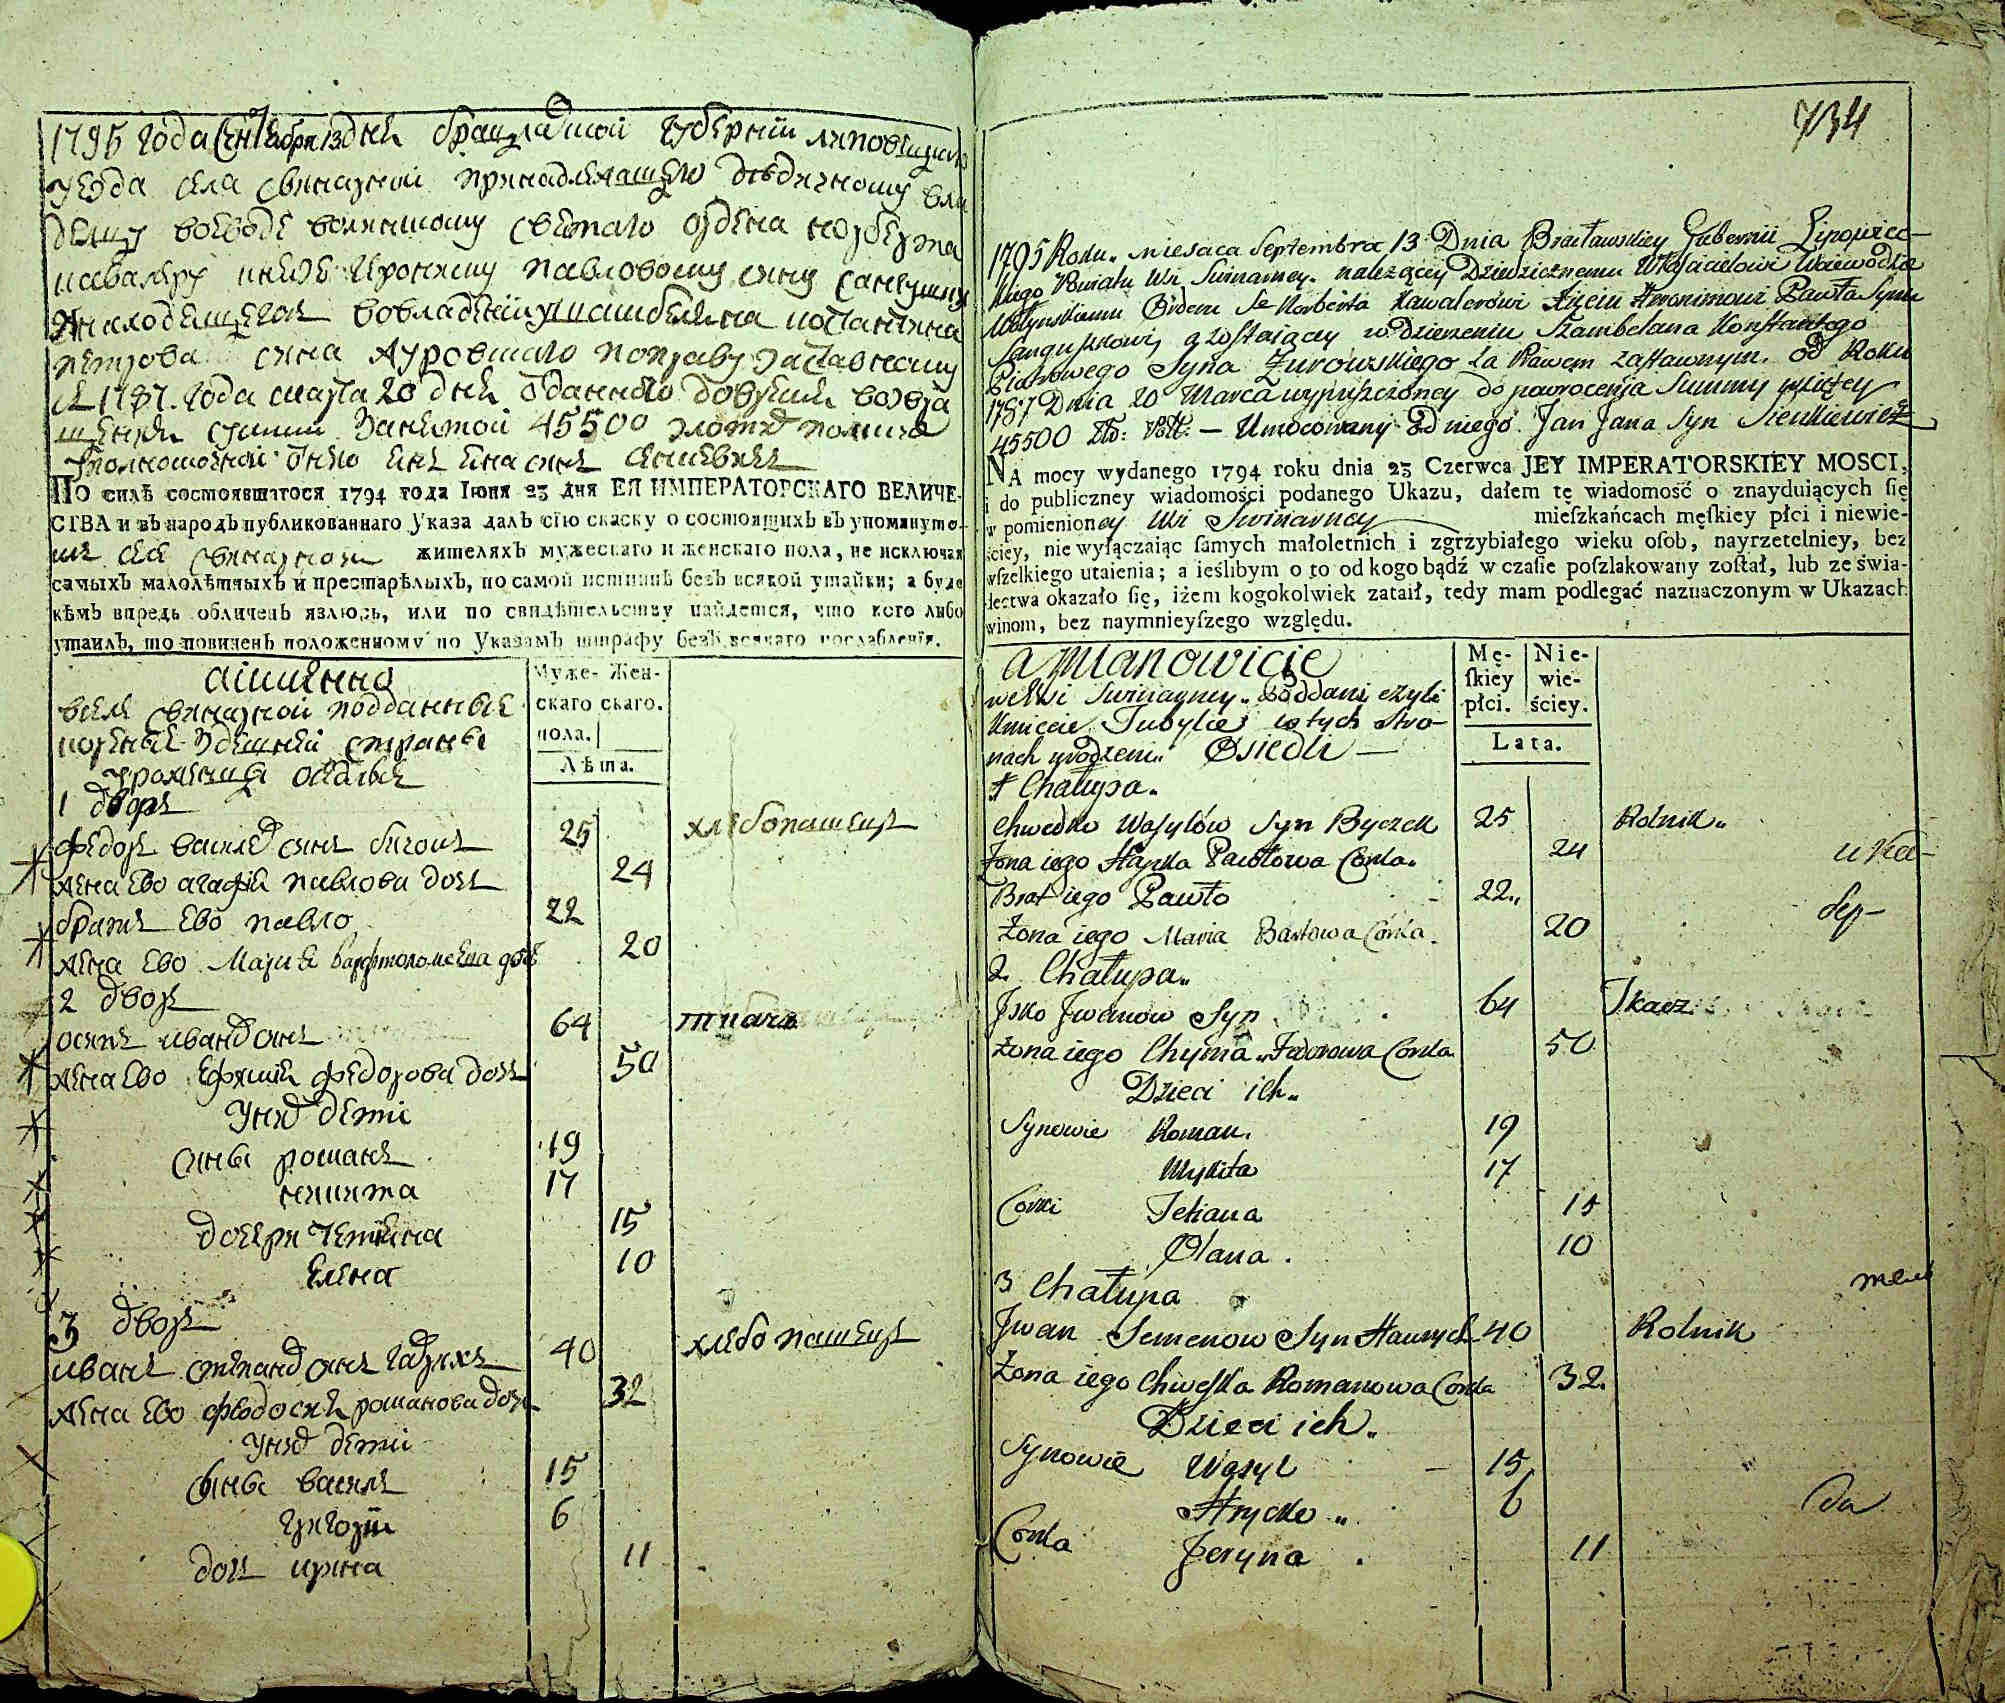 1795 года Сентебря 13 дня брацлавской губернии липовецкаго
уезда села свинарной принадлежащего дѣдичному вла
делцу воеводе волынскому светаго ордена норберта
кавалеру князю иронему павловому сину сангушку
а находещегося вовладении у шамбеляна костантина
петрова сина журовскаго по праву заставному
с 1787 года марта 20 дня отданного
суммы занетой 45500 злотых
уполномоченой от него ян яна син сенкевич
ПО силѣ состоявшагося 1794 года Іюня 23 дня ЕЯ ИМПЕРАТОРСКАГО ВЕЛИЧЕ-
СТВА и въ народъ публикованнаго Указа далъ сію скаску о состоящихъ въ упомянуто-
мъ селе свинарной жителяхъ мужескаго и женскаго пола, не исключая
самыхъ малолѣтныхъ и престарѣлыхъ, по самой истиннѣ безъ всякой утайки; а буде
кѣмъ впредь обличенъ явлюсь, или по свидѣтельству найдется, что кого либо
утаилъ, то повиненъ положенному по Указамъ штрафу безъ всякаго послабленія.
аіменно
Муже- Жен-
скаго скаго.
пола.
Лѣта.
в селе свинарной подданные
корѣные здешней страны
урожэнци оседлые
1 дворъ
федоръ василев синъ бичокъ 25 хлебопашецъ
жена ево агафия павлова дочъ 24
братъ ево павло 22
жена ево Мария варфтоломеева доч 20
2 дворъ
осипъ иванов синъ 64 ткачъ
жена ево ефимия федорова дочъ 50
у них дети
сины романъ 19
никита 17
дочери тетияна 15
елена 10
3 дворъ
иванъ степанов синъ 40 хлебопашецъ
жена ево феодосия романова дочъ 32
у них дети
сины василъ 15
григорiй 6
дочъ ирина 11
734
1795 Roku miesiąca Septembra 13 Dnia Bracławskiey Gubernii Lipowiec-
kiego Powiatu Wsi Swinarney należącey Dziedzicznemu Włascicielowi Woiewodzie
Wołynskiemu Orderu Sę Norberta Kawalerowi Xięciu Hieronimowi Pawła Synu
Sanguszkowi, a zostaiącey w dzierzeniu Szambelana Konstantego
Piotrowego Syna Żurowskiego za Prawem zastawnym od Roku
1787 Dnia 20 Marca wypuszczoney do powrocenia Summy wziętey
45500 Zło: Pol: — Umocowany od niego Jan Jana Syn Sienkiewicz
NA mocy wydanego 1794 roku dnia 23 Czerwca JEY IMPERATORSKIEY MOSCI,
i do publiczney wiadomości podanego Ukazu, dałem tę wiadomość o znayduiących się
w pomienioney Wsi Swinarney mieſzkańcach męſkiey płci i niewie-
ściey, nie wyłączaiąc ſamych małoletnich i zgrzybiałego wieku oſob, nayrzetelniey, bez
wſzelkiego utaienia; a ieślibym o to od kogo bądź w czaſie poſzlakowany zoſtał, lub ze świa-
dectwa okazało ſię, iżem kogokolwiek zataił, tedy mam podlegać naznaczonym w Ukazach
winom, bez naymnieyſzego względu.
a Mianowicie
Mę- Nie-
ſkiey wie-
płci. ściey.
Lata.
we Wsi Swinarney Poddani czyli
Kmiecie Tubylcy w tych stro-
nach urodzeni Osiedli —
1 Chałupa.
Chwedko Wasylów Syn Byczek 25 Rolnik
Żona iego Hapka Pawłowa Corka 24
ука-
Brat iego Pawło 22
Żona iego Maria Bartowa Córka 20
2. Chałupa
Jsko Jwanow Syn 64 Tkacz
Żona iego Chyma Fedorowa Corka 50
Dzieci ich
Synowie Roman 19
Mykita 17
Corki Tetiana 15
Olana 10
3 Chałupa
Jwan Semenow Syn Hawrych 40 Rolnik
Żona iego Chweska Romanowa Corka 32
Dzieci ich
Synowie Wasyl 15
Hrycko 6
Corka Jeryna 11